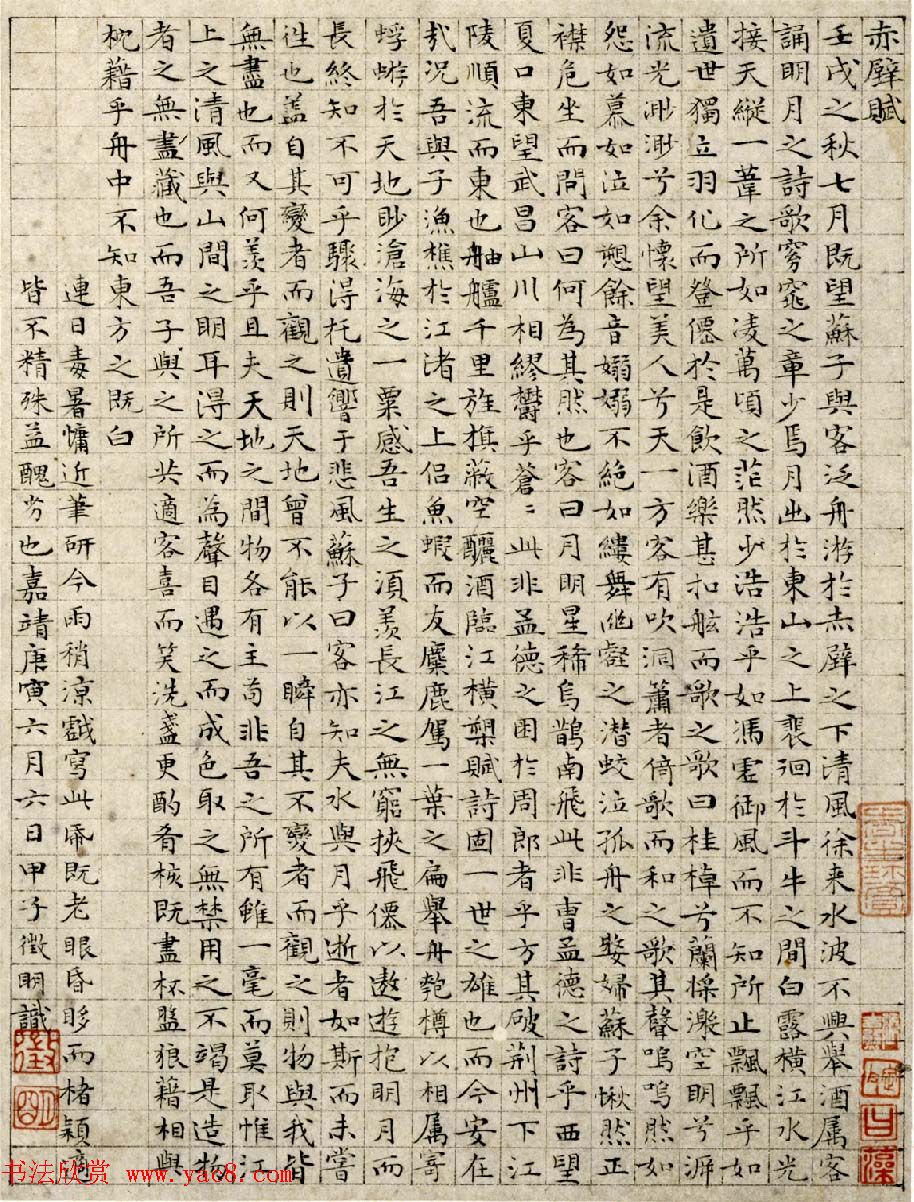 赤壁賦
壬戌之秋七月既望蘇子與客泛舟游於赤壁之下清風徐来水波不興舉酒属客
誦明月之詩歌窈窕之章少焉月出於東山之上裴徊於斗牛之間白露横江水光
接天縱一葦之所如凌萬頃之茫然少浩浩乎如馮虚御風而不知所止飄飄乎如
遺世獨立羽化而登僊於是飲酒樂甚扣舷而歌之歌曰桂棹兮蘭槳激空明兮泝
流光渺渺兮余懷望美人兮天一方客有吹洞簫者倚歌而和之歌其聲嗚嗚然如
怨如慕如泣如愬餘音嫋嫋不絶如縷舞幽壑之潜蛟泣孤舟之嫠婦蘇子愀然正
襟危坐而問客曰何為其然也客曰月明星稀烏鵲南飛此非曹孟德之詩乎西望
夏口東望武昌山川相繆欝乎蒼〻此非孟德之困於周郎者乎方其破荆州下江
陵順流而東也舳艫千里旌旗蔽空釃酒臨江横槊賦詩固一世之雄也而今安在
㢤况吾與子漁樵於江渚之上侣魚蝦而友麋鹿駕一葉之扁舉舟匏樽以相属寄
蜉蝣於天地眇滄海之一粟感吾生之湏羨長江之無窮挾飛僊以遨遊抱明月而
長終知不可乎驟淂托遺響于悲風蘇子曰客亦知夫水與月乎逝者如斯而未嘗
徃也盖自其變者而觀之則天地曾不能以一瞬自其不變者而觀之則物與我皆
無盡也而又何羨乎且夫天地之間物各有主苟非吾之所有雖一毫而莫取惟江
上之清風與山間之明耳淂之而為聲目遇之而成色取之無禁用之不竭是造物
者之無盡藏也而吾子與之所共適客喜而笑洗盞更酌肴核既盡杯盤狼藉相與
枕藉乎舟中不知東方之既白
連日毒暑慵近筆研今雨稍凉戲寫此帋既老眼昏眵而楮穎適
皆不精殊益醜劣也嘉靖庚寅六月六日甲子徵明識
徵
明
书法欣赏 www.yac8.com